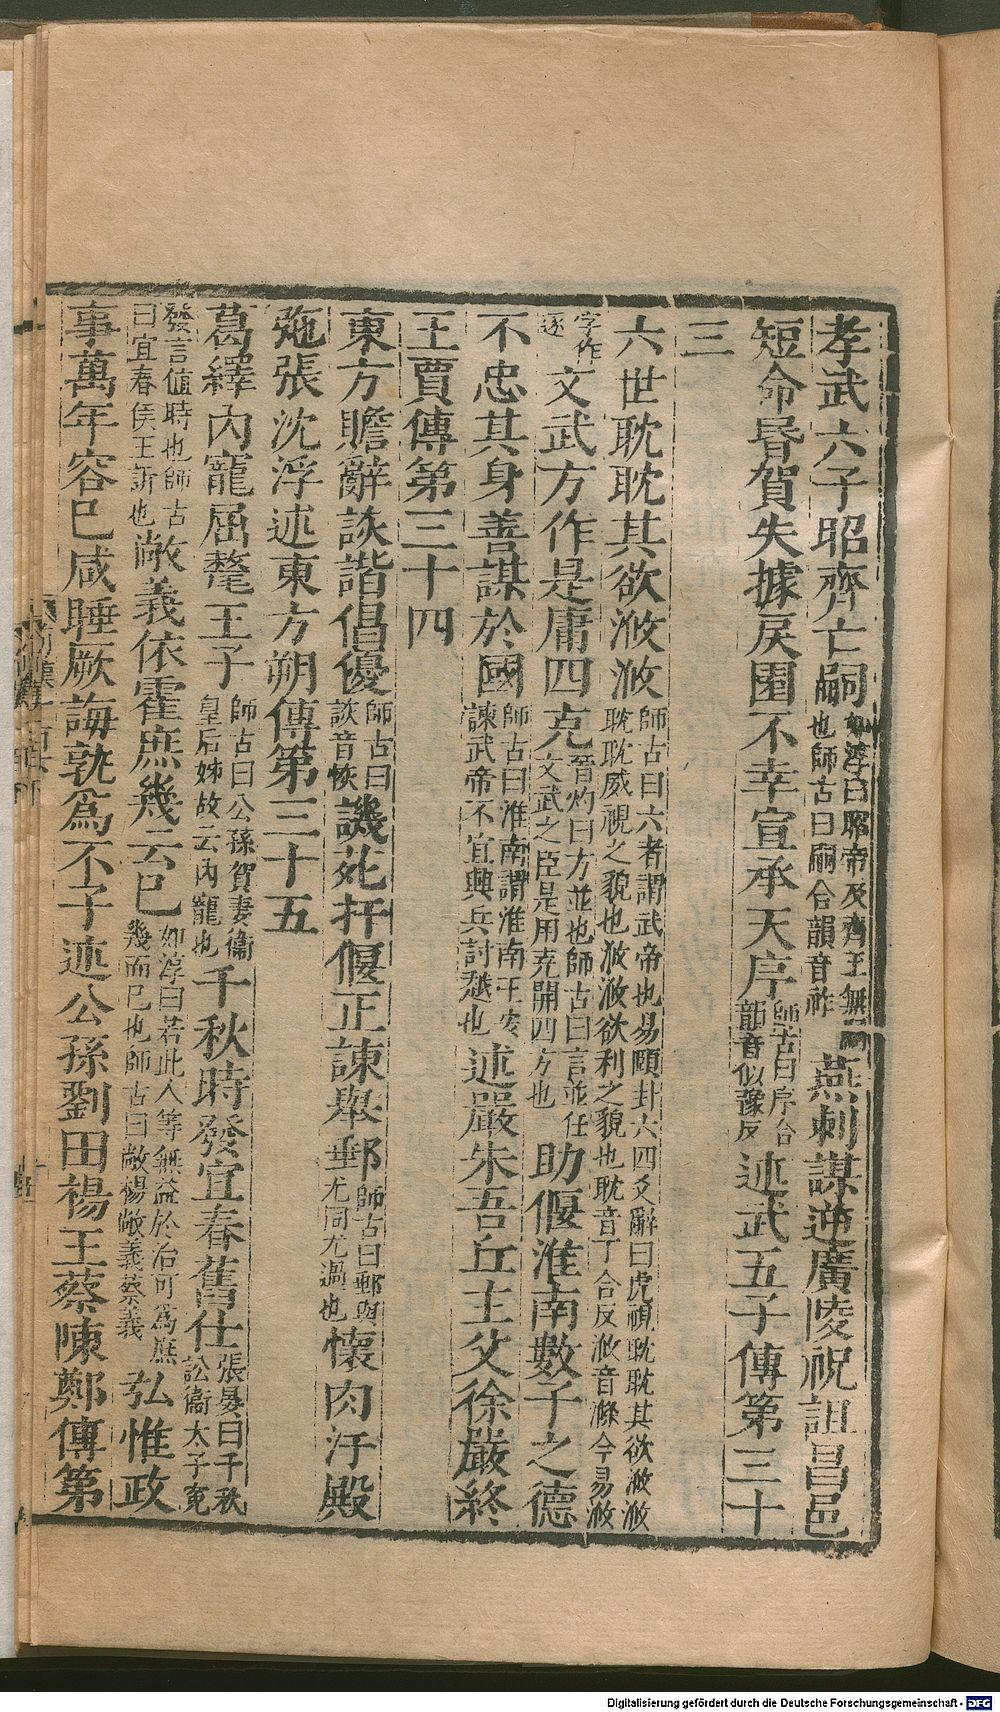 孝武六子昭齊亡嗣如淳曰昭帝及齊王無嗣也師古曰嗣合韻音祚燕刺謀逆廣陵祝詛昌邑
短命昬賀失據戾園不幸宣承天序師古曰序合韻音似豫反述武五子傳第三十
三
六世耽耽其欲浟浟師古曰六者謂武帝也易頤卦六四爻辭曰虎視耽耽其欲浟浟耽耽威視之貌也浟浟欲利之貌也耽音丁合反浟音滌今易浟
字作逐文武方作是庸四克晉灼曰方並也師古曰言並任文武之臣是用克開四方也助偃淮南數子之德
不忠其身善謀於國師古曰淮南謂淮南王安諫武帝不宜興兵討越也述嚴朱吾丘主父徐嚴終
王賈傳第三十四
東方贍辭詼諧倡優師古曰詼音恢譏苑扞偃正諫舉郵師古曰郵與尤同尤過也懷肉汙殿
㢮張沈浮述東方朔傳第三十五
葛繹內寵屈氂王子師古曰公孫賀妻衞皇后姊故云內寵也千秋時發宜春舊仕張晏曰千秋訟衞太子寃
發言値時也師古曰宜春侯王訢也敞義依霍庶幾云已如淳曰若此人等無益於治可爲庶幾而已也師古曰敞楊敞義蔡義弘惟政
事萬年容已咸睡厥誨孰爲不子述公孫劉田楊王蔡陳鄭傳第
Digitalisierung gefördert durch die Deutsche Forschungsgemeinschaft - DFG